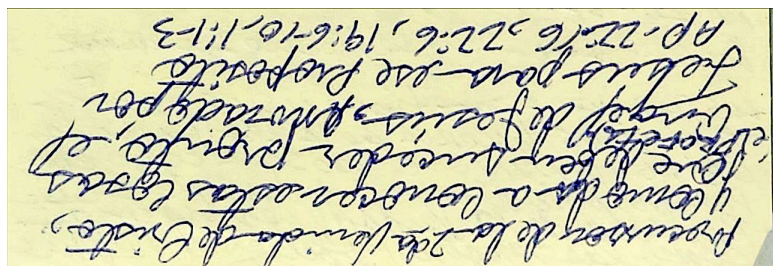 precursor de la 2da Venida de Cristo,
y como da a conocer estas cosas
que deben suceder pronto, el
el profeta,
Angel de Jesús, enviado por
Jehus para ese proposito
Ap. 22:16, 22:6, 19:6-10, 1:1-3